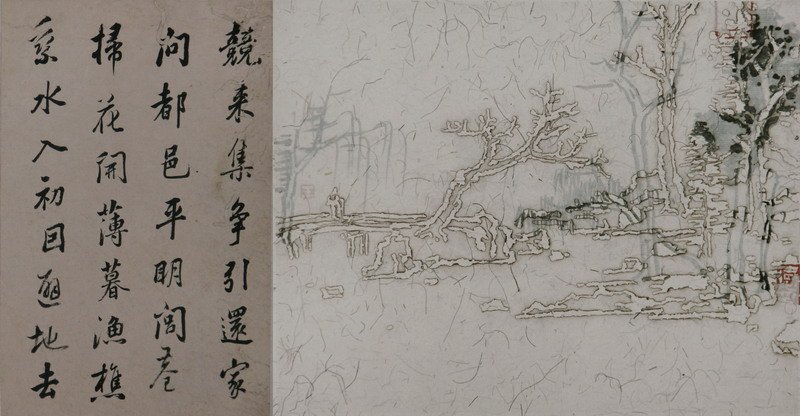 競来集争引還家
問都邑平明閭巷
掃花開薄暮漁樵
乘水入初因避地去